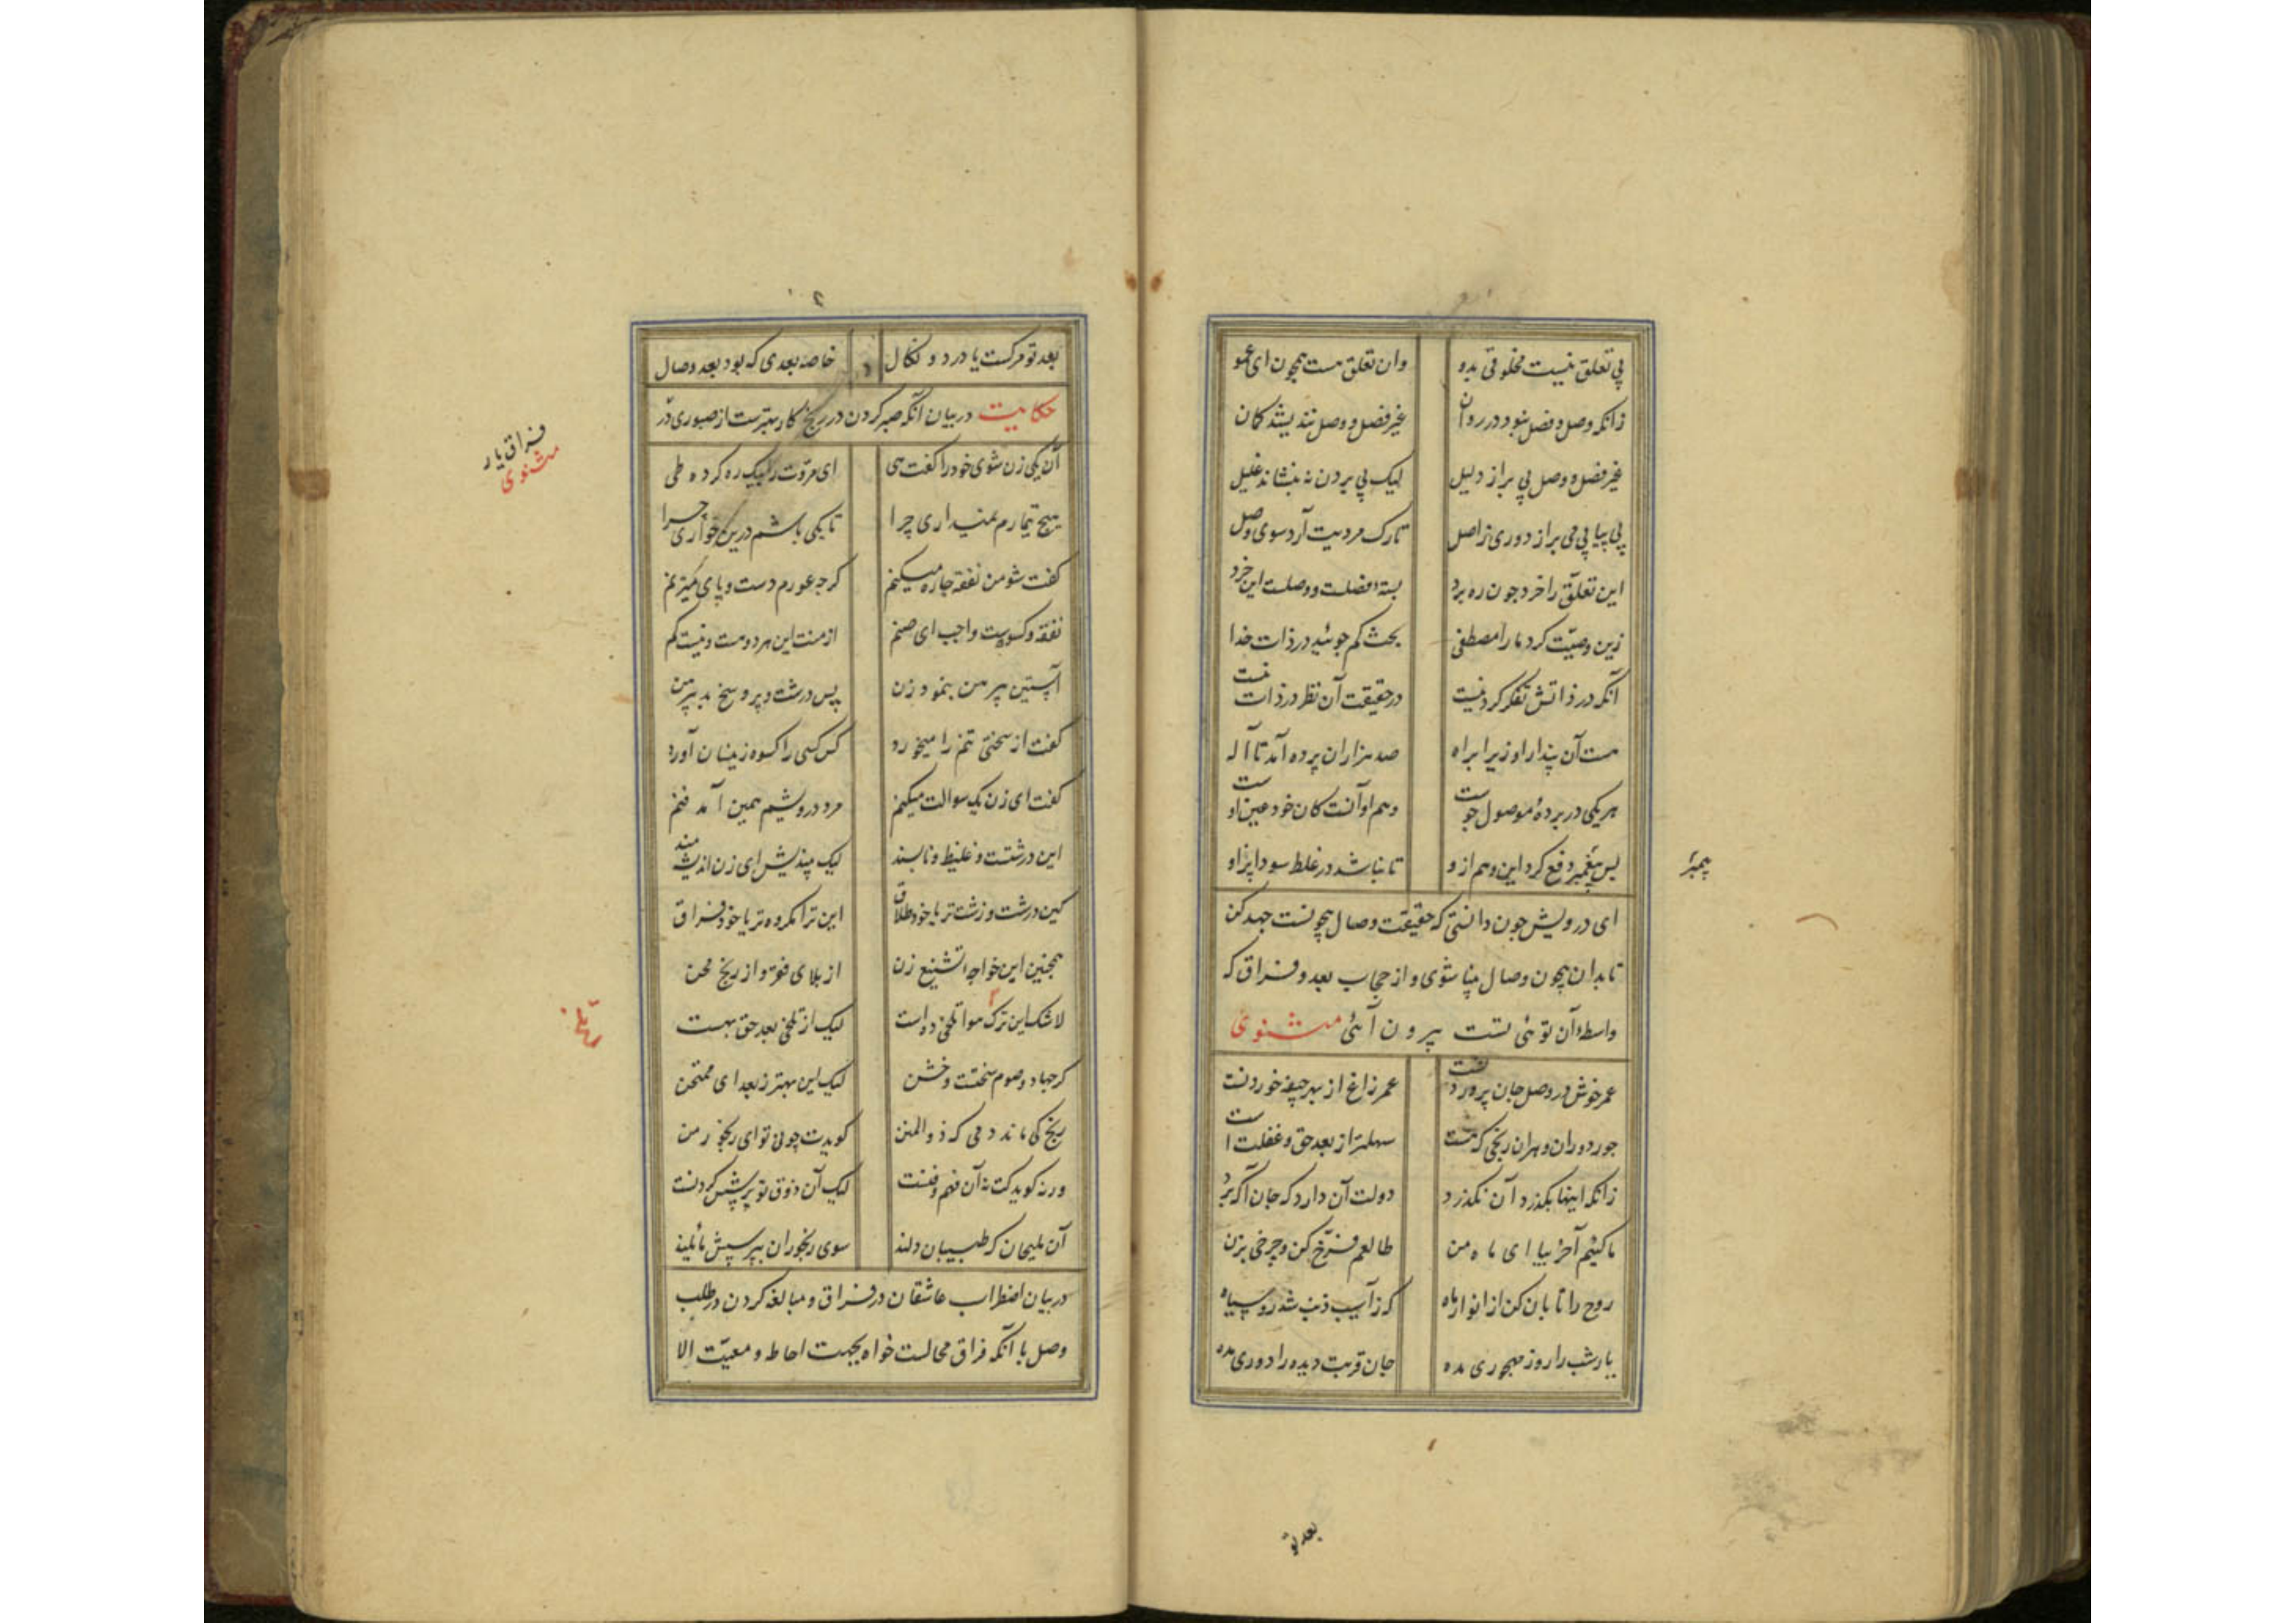 بی تعلق نیست مخلوقی بدو وان تعلق هست بیچون ای عمو
زانکه وصل و فصل نبود در روان غیر فصل و وصل نندیشد کان
غیر فصل و وصل پی بر از دلیل لیک پی بردن نه بنشاند غلیل
پی پیاپی می بر از دوری ز اصل تا رک مردیت آرد سوی وصل
این تعلق را خرد چون ره برد بسته فصلست و وصلست این خرد
زین وصیت کرد ما را مصطفی بحث کم جوئید در ذات خدا
آنکه در ذاتش تفکر کردنیست در حقیقت آن نظر در ذات نیست
هست آن پندار او زیرا براه صد هزاران پرده آمد تا آله
هر یکی در پردهٔ موصول جوست وهم او آنست کان خود عین اوست
پس پیغمبر دفع کرد این وهم ازو تا نباشد در غلط سودا پز او
پیمبر
ای درویش چون دانستی که حقیقت وصال بیچونست جهد کن
تا بدان بیچون وصال بینا شوی و از حجاب بعد و فراق که
واسطهٔ آن توئی تست بیرون آئی مثنوی
عمر خوش در وصل جان پروردنست عمر زاغ از بهر چیفه خوردنست
جور دوران و هران رنجی که هست سهلتر از بعد حق و غفلت است
زانکه اینها بگذرد آن نگذرد دولت آن دارد که جان آگه برد
ما کئیم آخر بیا ای ماه من طالعم فرّخ کن و چرخی بزن
روح را تابان کن از انوار ماه که ز آسیب ذنب شد رو سیاه
یار شب را روز مهجوری مده جان قربت دیده را دوری مده
بعد تو
بعد تو مرکست با درد و نکال خاصه بعدی که بود بعد وصال
حکایت در بیان آنکه صبر کردن در رنج کار بهترست از صبوری در
فراق یار
مثنوی
آن یکی زن شوی خود را گفت هی ای مروت را بیک ره کرده طی
هیچ تیمارم نمیداری چرا تا بکی باشم درین خواری چرا
کفت شو من نفقه چاره میکنم کرچه عورم دست و پای میزنم
نفقه و کسوست واجب ای صنم از منت این هر دو هست و نیست کم
آستین پیرهن بنمود زن پس درشت و پر وسخ بد پیرهن
کفت از سختی تنم را میخورد کس کسی را کسوه زینسان آورد
کفت ای زن یک سوالت میکنم مرد درویشم همین آمد فنم
این درشتست و غلیظ و ناپسند لیک بندیش ای زن اندیشه مند
کین درشت و زشت تر یا خود طلاق این ترا مکروه تر یا خود فراق
همچنین این خواجه تشنیع زن از بلای فقر و از رنج محن
لا شک این ترک هوا تلخی ده است لیک از تلخی بعد حق بهست
کر جهاد و صوم سختست و خشن لیک این بهتر ز بعد ای ممتحن
رنج کی ماند دمی که ذو المنن کویدت چونی تو ای رنجور من
ور نه کویدکت نه آن فهم و فنست لیک آن ذوق تو پرسش کردنست
آن ملیحان که طبیبان دلند سوی رنجوران بپرسش مائلند
در بیان اضطراب عاشقان در فراق و مبالغه کردن در طلب
وصل با آنکه فراق محالست خواه بجهت احاطه و معیّت الا